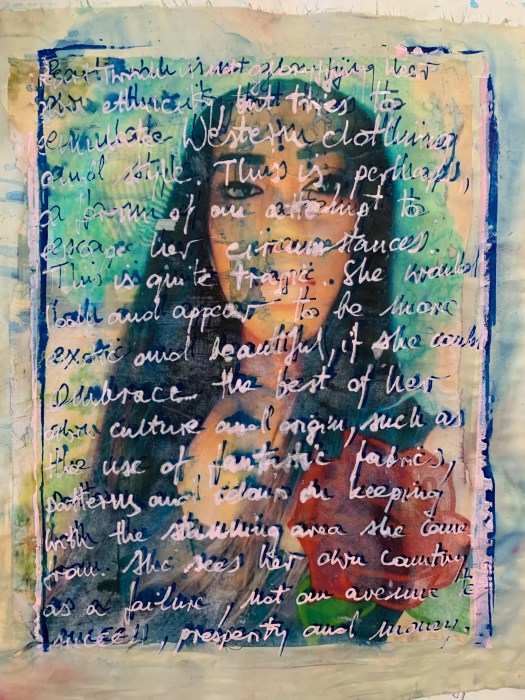 is not glorifying her
own ethnicity but tries to
emulate Western clothing
and style. This is perhaps,
a form of an attempt to
escape her circumstances.
This is quite tragic. She would
look and appear to be more
exotic and beautiful, if she could
embrace the best of her
own culture and origin, such as
the use of fantastic fabrics,
patterns and colour in keeping
with the stunning area she came
from. She sees her own country
as a failure, not an avenue to
success, prosperity and money.